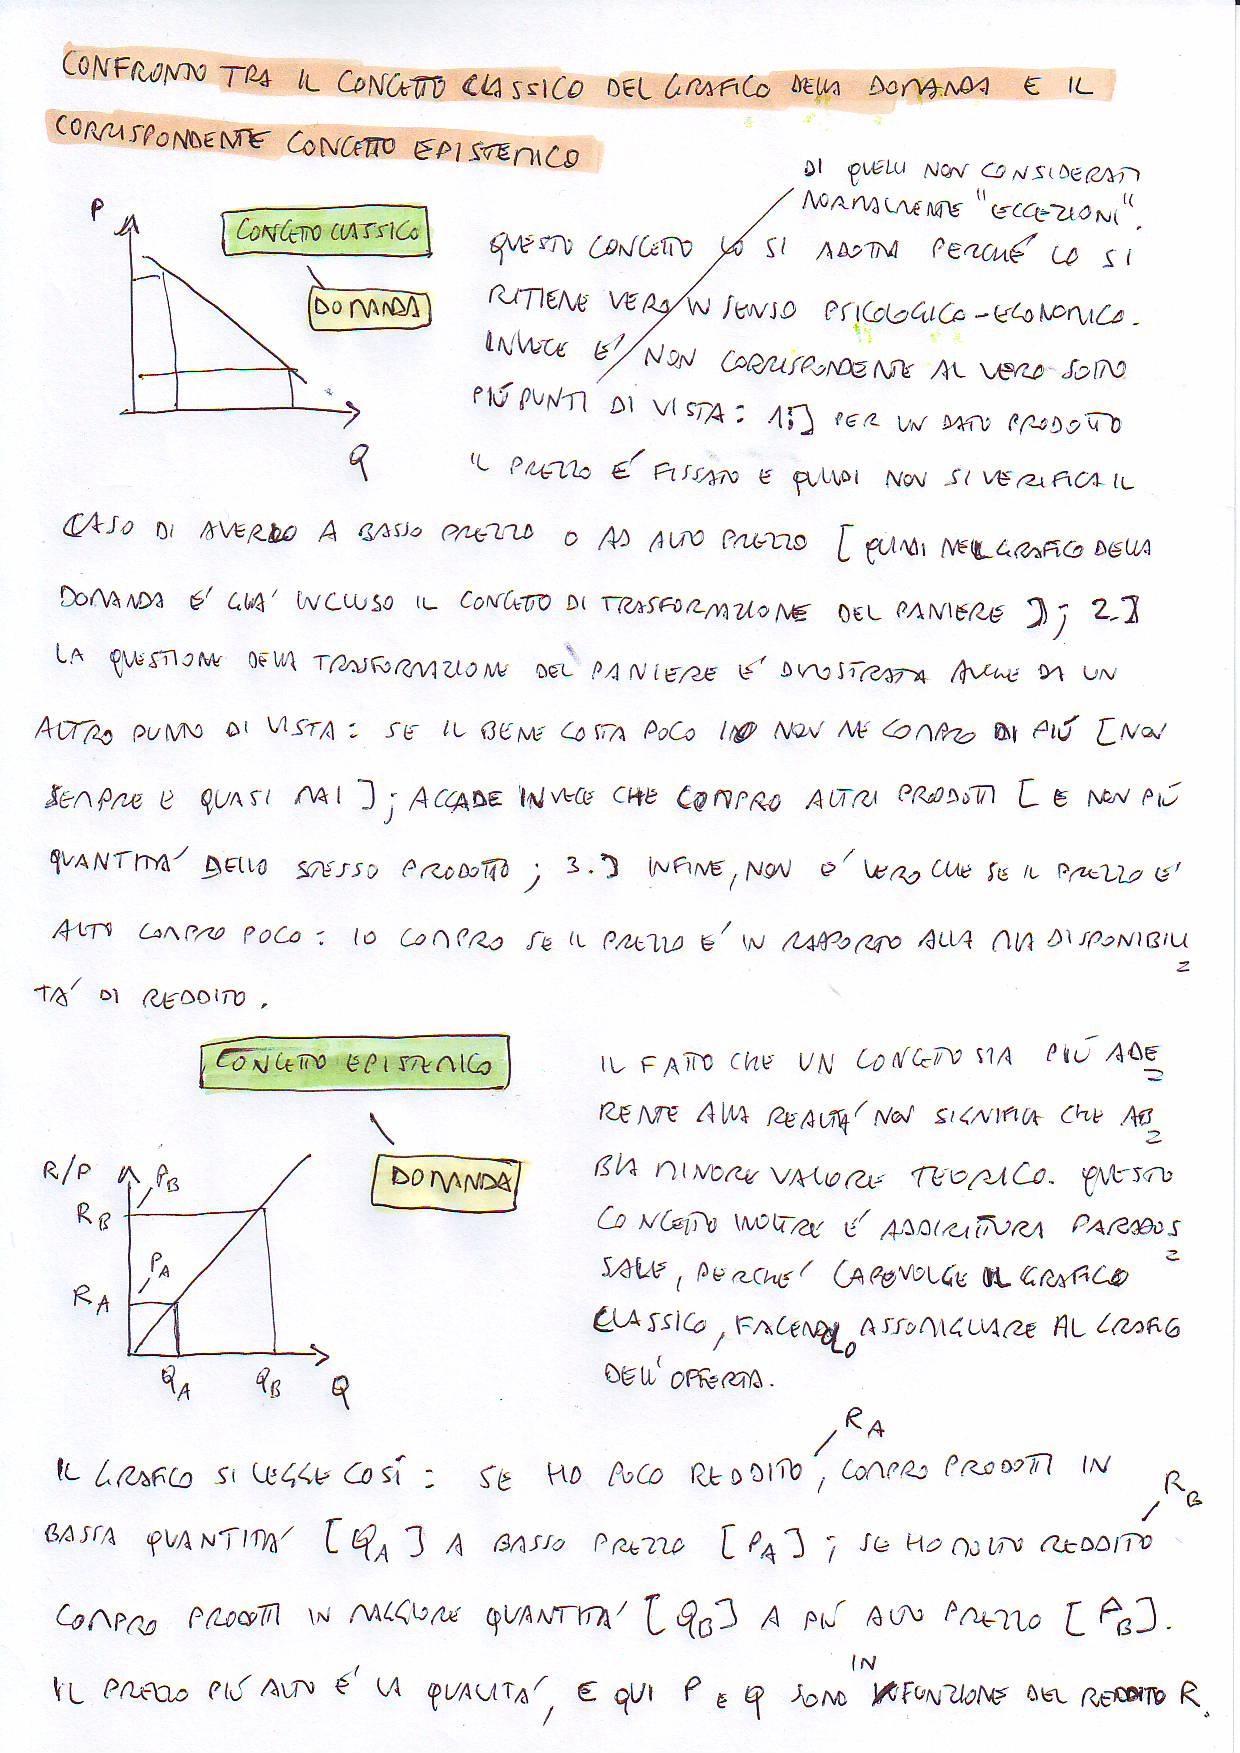 CONFRONTO TRA IL CONCETTO CLASSICO DEL GRAFICO DELLA DOMANDA E IL
CORRISPONDENTE CONCETTO EPISTEMICO
DI QUELLI NON CONSIDERATI
NORMALMENTE "ECCEZIONI".
P
CONCETTO CLASSICO
DOMANDA
Q
QUESTO CONCETTO LO SI ADOTTA PERCHÉ LO SI
RITIENE VERO IN SENSO PSICOLOGICO-ECONOMICO.
INVECE E' NON CORRISPONDENTE AL VERO SOTTO
PIÚ PUNTI DI VISTA: 1.] PER UN DATO PRODOTTO
IL PREZZO E' FISSATO E QUINDI NON SI VERIFICA IL
CASO DI AVERLO A BASSO PREZZO O AD ALTO PREZZO [QUINDI NEL GRAFICO DELLA
DOMANDA E' GIA' INCLUSO IL CONCETTO DI TRASFORMAZIONE DEL PANIERE]; 2.]
LA QUESTIONE DELLA TRASFORMAZIONE DEL PANIERE E' DIMOSTRATA ANCHE DA UN
ALTRO PUNTO DI VISTA: SE IL BENE COSTA POCO IO NON NE COMPRO DI PIÚ [NON
SEMPRE E QUASI MAI]; ACCADE INVECE CHE COMPRO ALTRI PRODOTTI [E NON PIÚ
QUANTITA' DELLO STESSO PRODOTTO; 3.] INFINE, NON E' VERO CHE SE IL PREZZO E'
ALTO COMPRO POCO: IO COMPRO SE IL PREZZO E' IN RAPPORTO ALLA MIA DISPONIBILI
TA' DI REDDITO.
CONCETTO EPISTEMICO
DOMANDA
R/P
RB
PB
RA
PA
QA
QB
Q
IL FATTO CHE UN CONCETTO SIA PIÚ ADE
RENTE ALLA REALTA' NON SIGNIFICA CHE AB
BIA MINORE VALORE TEORICO. QUESTO
CONCETTO INOLTRE E' ADDIRITTURA PARADOS
SALE, PERCHE' CAPOVOLGE IL GRAFICO
CLASSICO, FACENDOLO ASSOMIGLIARE AL GRAFICO
DELL'OFFERTA.
RA
IL GRAFICO SI LEGGE COSÍ: SE HO POCO REDDITO, COMPRO PRODOTTI IN
RB
BASSA QUANTITA' [QA] A BASSO PREZZO [PA]; SE HO MOLTO REDDITO
COMPRO PRODOTTI IN MAGGIORE QUANTITA' [QB] A PIÚ ALTO PREZZO [PB].
IL PREZZO PIÚ ALTO E' LA QUALITA', E QUI P E Q SONO IN FUNZIONE DEL REDDITO R.